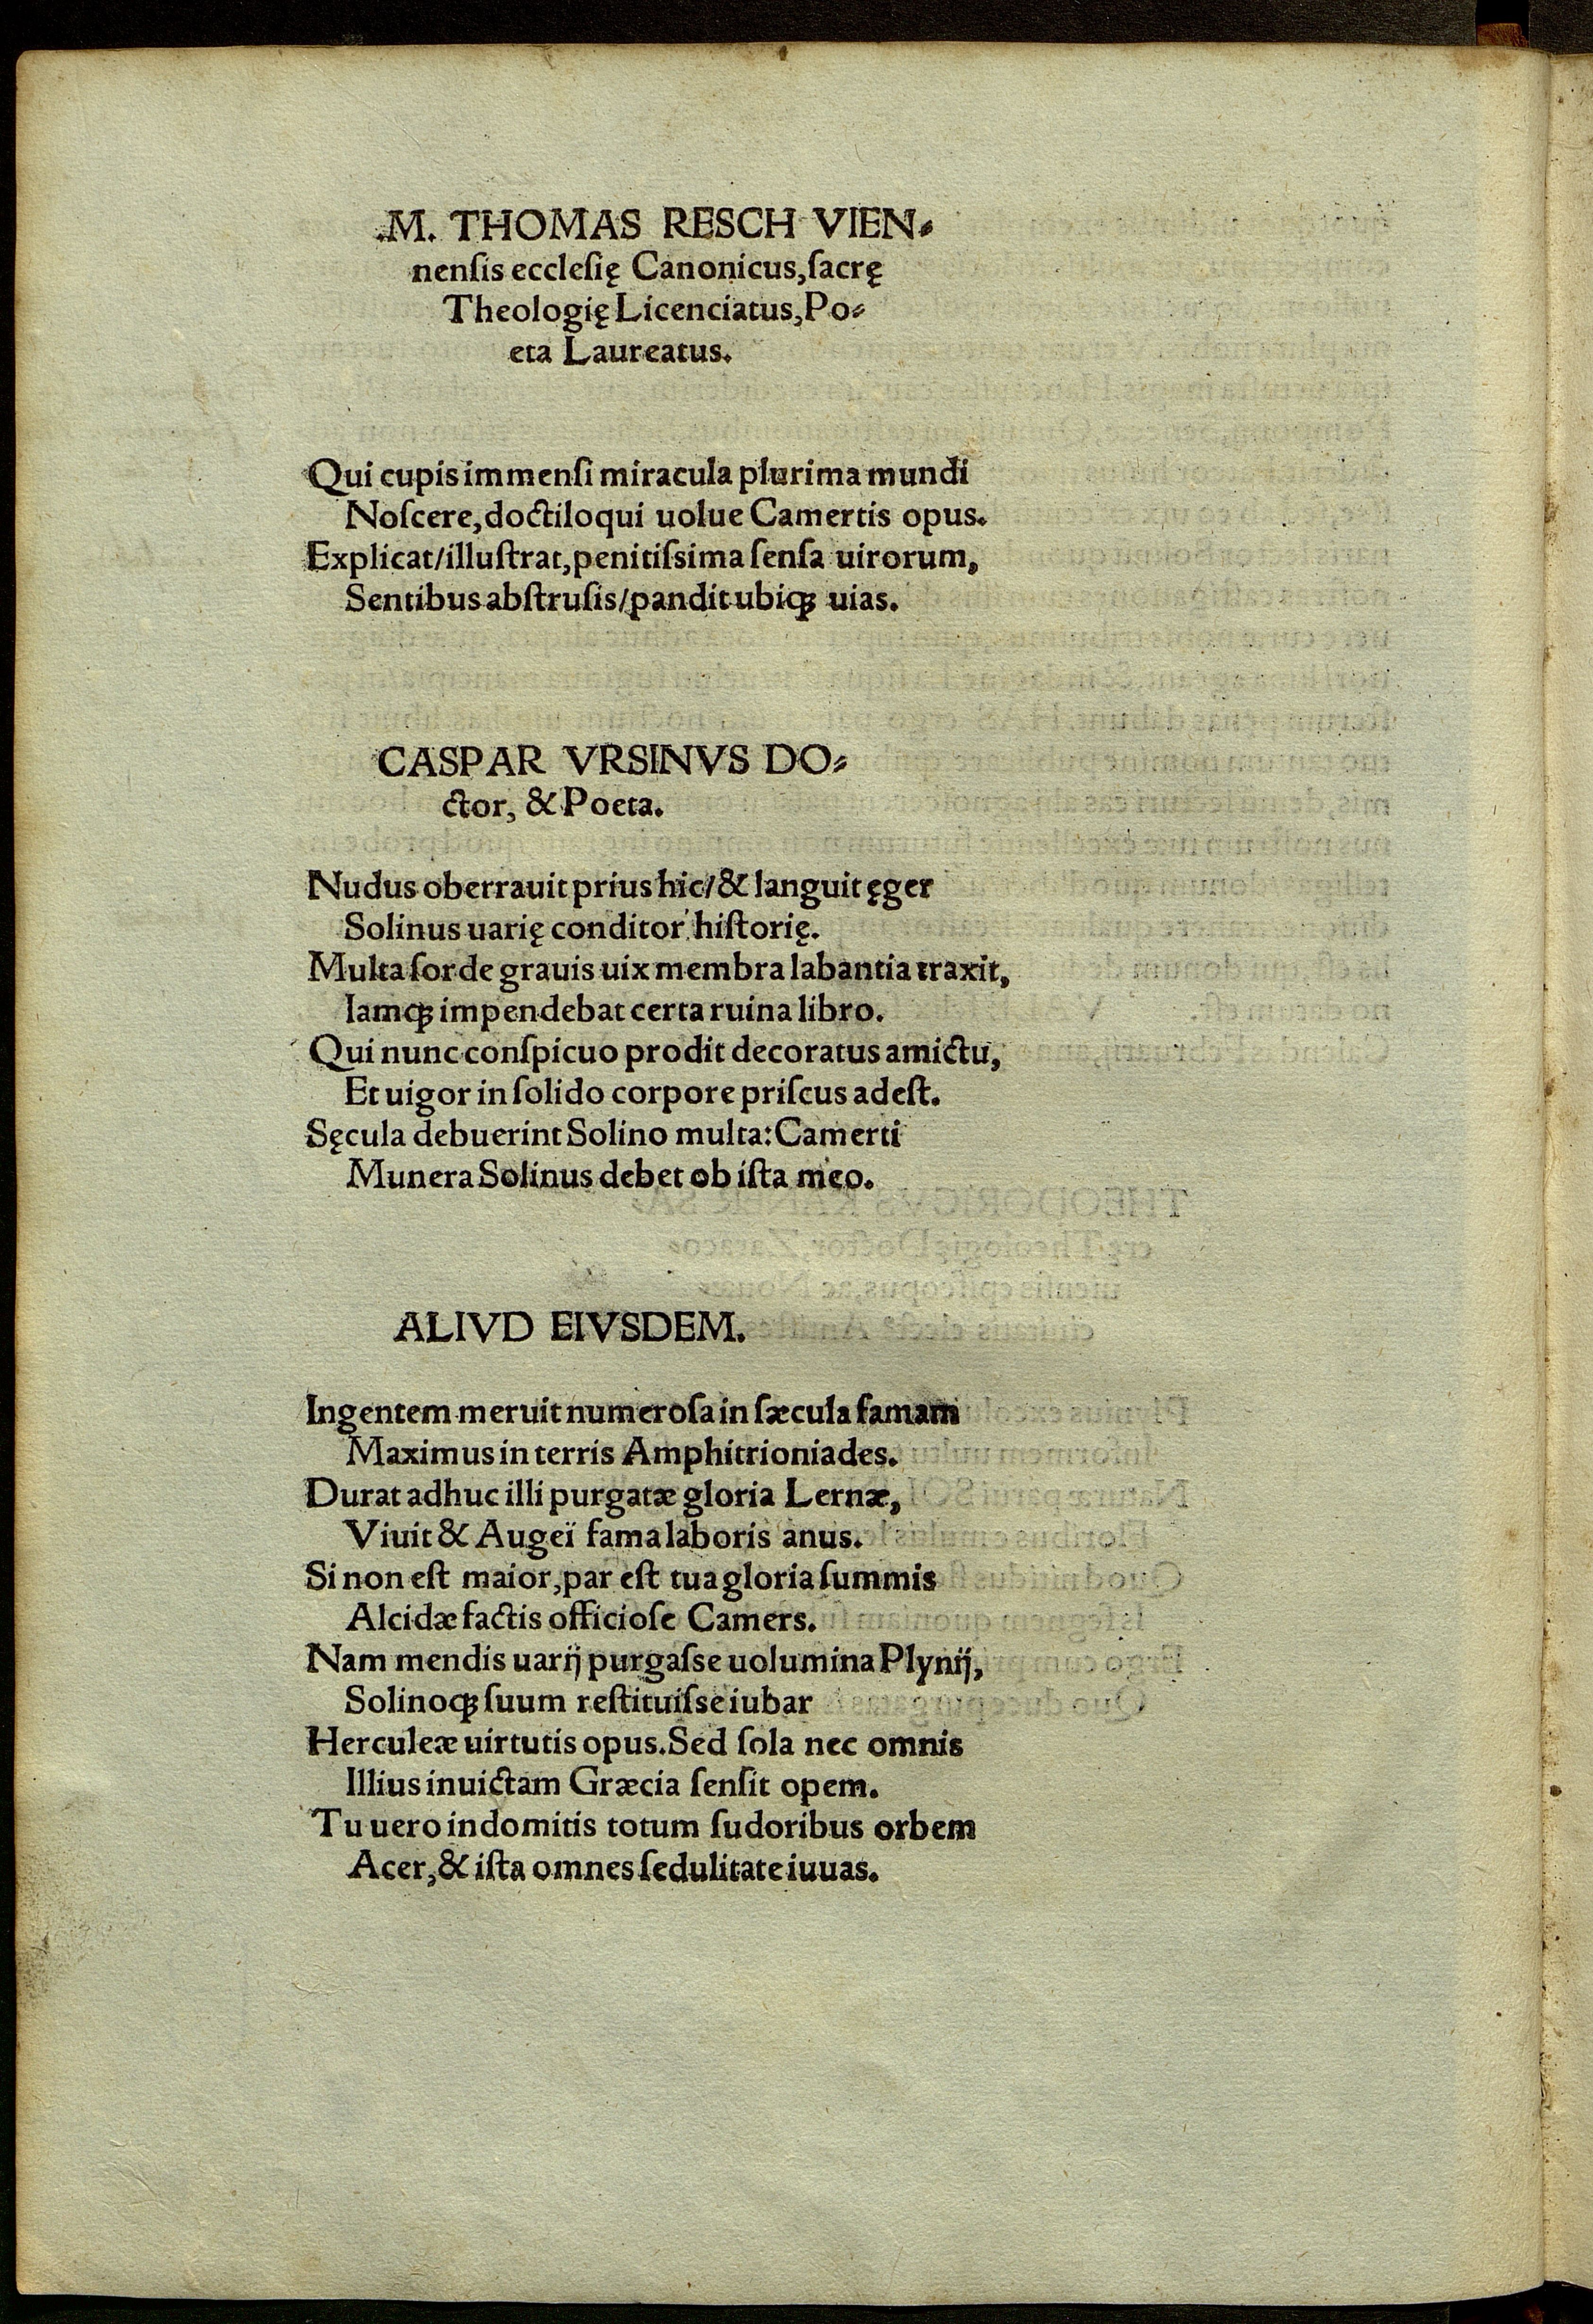 .M. THOMAS RESCH VIEN⸗
nenſis eccleſię Canonicus, ſacrę
Theologię Licenciatus, Po⸗
eta Laureatus.
Qui cupis immenſi miracula plurima mundi
Noſcere, doctiloqui uolue Camertis opus.
Explicat/illuſtrat, penitiſsima ſenſa uirorum,
Sentibus abſtruſis/pandit ubiqꝫ uias.
CASPAR VRSINVS DO⸗
ctor, & Poeta.
Nudus oberrauit prius hic/& languit ęger
Solinus uarię conditor hiſtorię.
Multa ſorde grauis uix membra labantia traxit,
Iamqꝫ impendebat certa ruina libro.
Qui nunc conſpicuo prodit decoratus amictu,
Et uigor in ſolido corpore priſcus adeſt.
Sęcula debuerint Solino multa: Camerti
Munera Solinus debet ob iſta meo.
ALIVD EIVSDEM.
Ingentem meruit numeroſa in ſæcula famam
Maximus in terris Amphitrioniades.
Durat adhuc illi purgatæ gloria Lernæ,
Viuit & Augeï fama laboris anus.
Si non eſt maior, par eſt tua gloria ſummis
Alcidæ factis officioſe Camers.
Nam mendis uarij purgaſse uolumina Plynij,
Solinoqꝫ ſuum reſtituiſse iubar
Herculeæ uirtutis opus. Sed ſola nec omnis
Illius inuictam Græcia ſenſit opem.
Tu uero indomitis totum ſudoribus orbem
Acer, & iſta omnes ſedulitate iuuas.